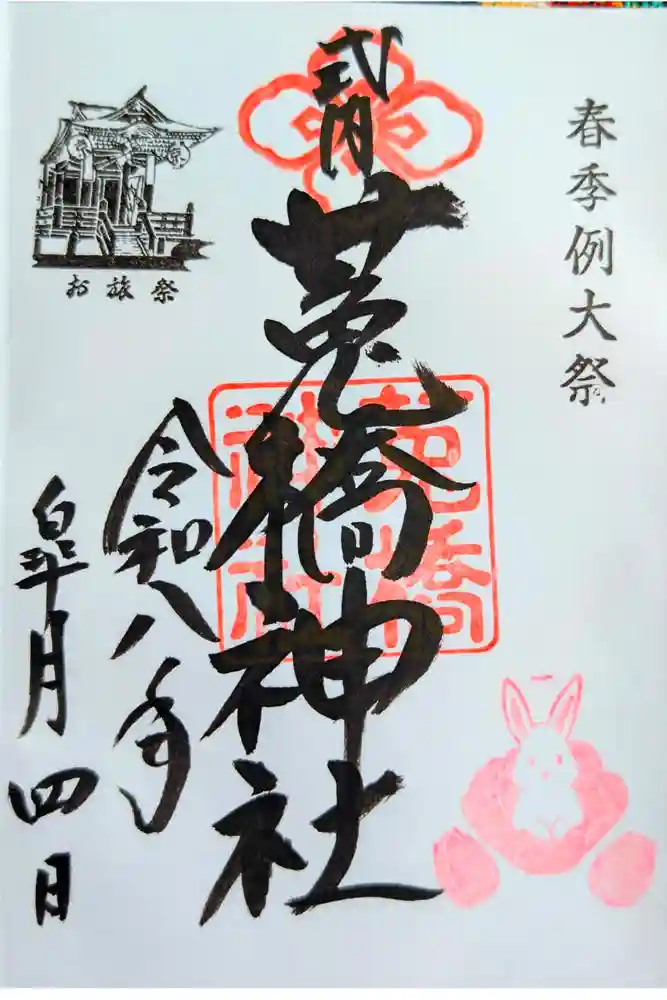 春季例大祭
式内
莵橋神社
令和八年
皐月四日
お旅祭
莵橋
神社